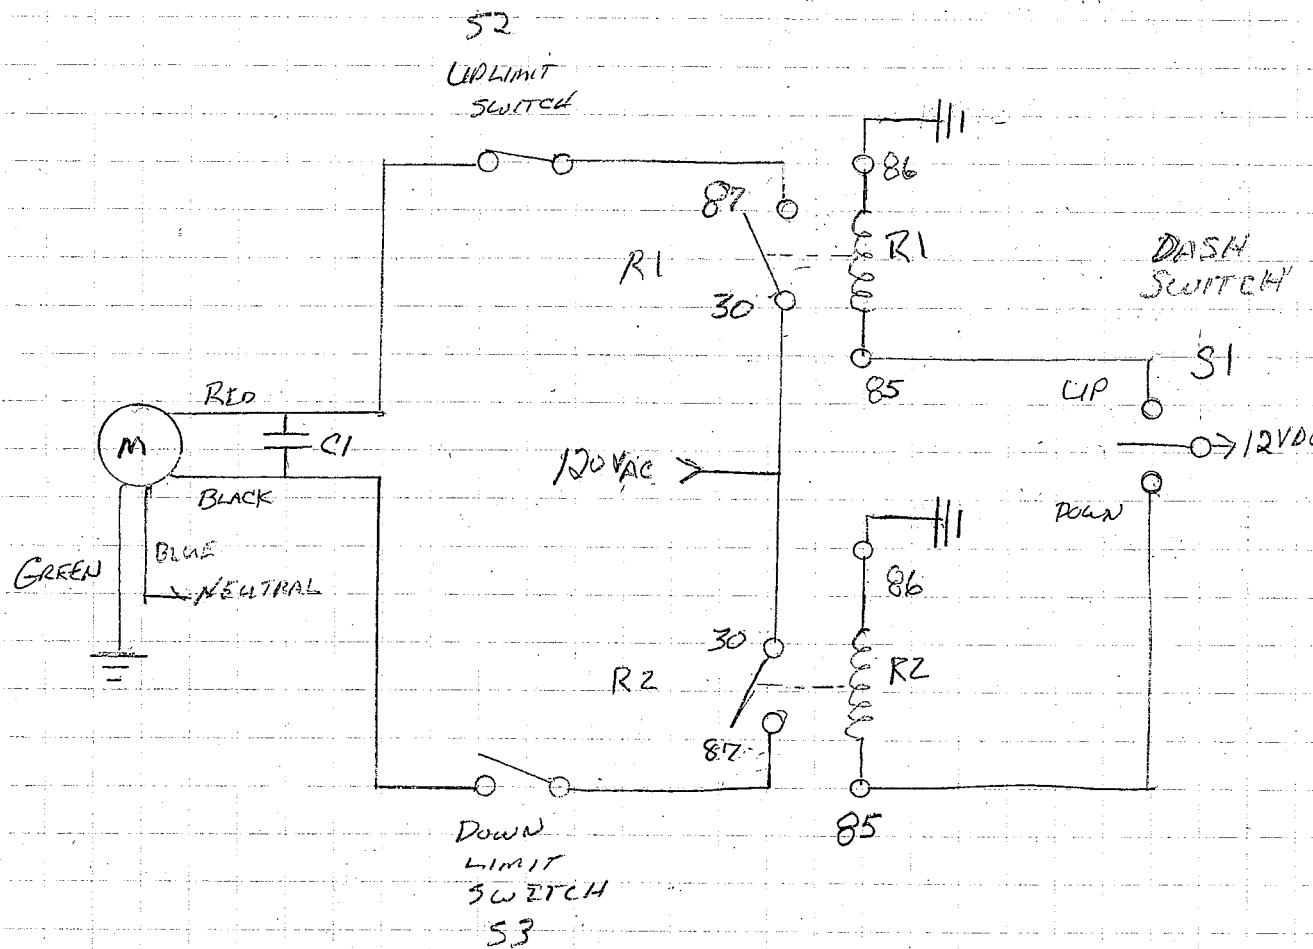 S2
UP LIMIT
SWITCH
86
87
R1
R1
DASH
SWITCH
30
S1
85
UP
RED
M
C1
120 VAC
12VDC
BLACK
DOWN
BLUE
GREEN
NEUTRAL
86
30
R2
R2
87
85
DOWN
LIMIT
SWITCH
S3